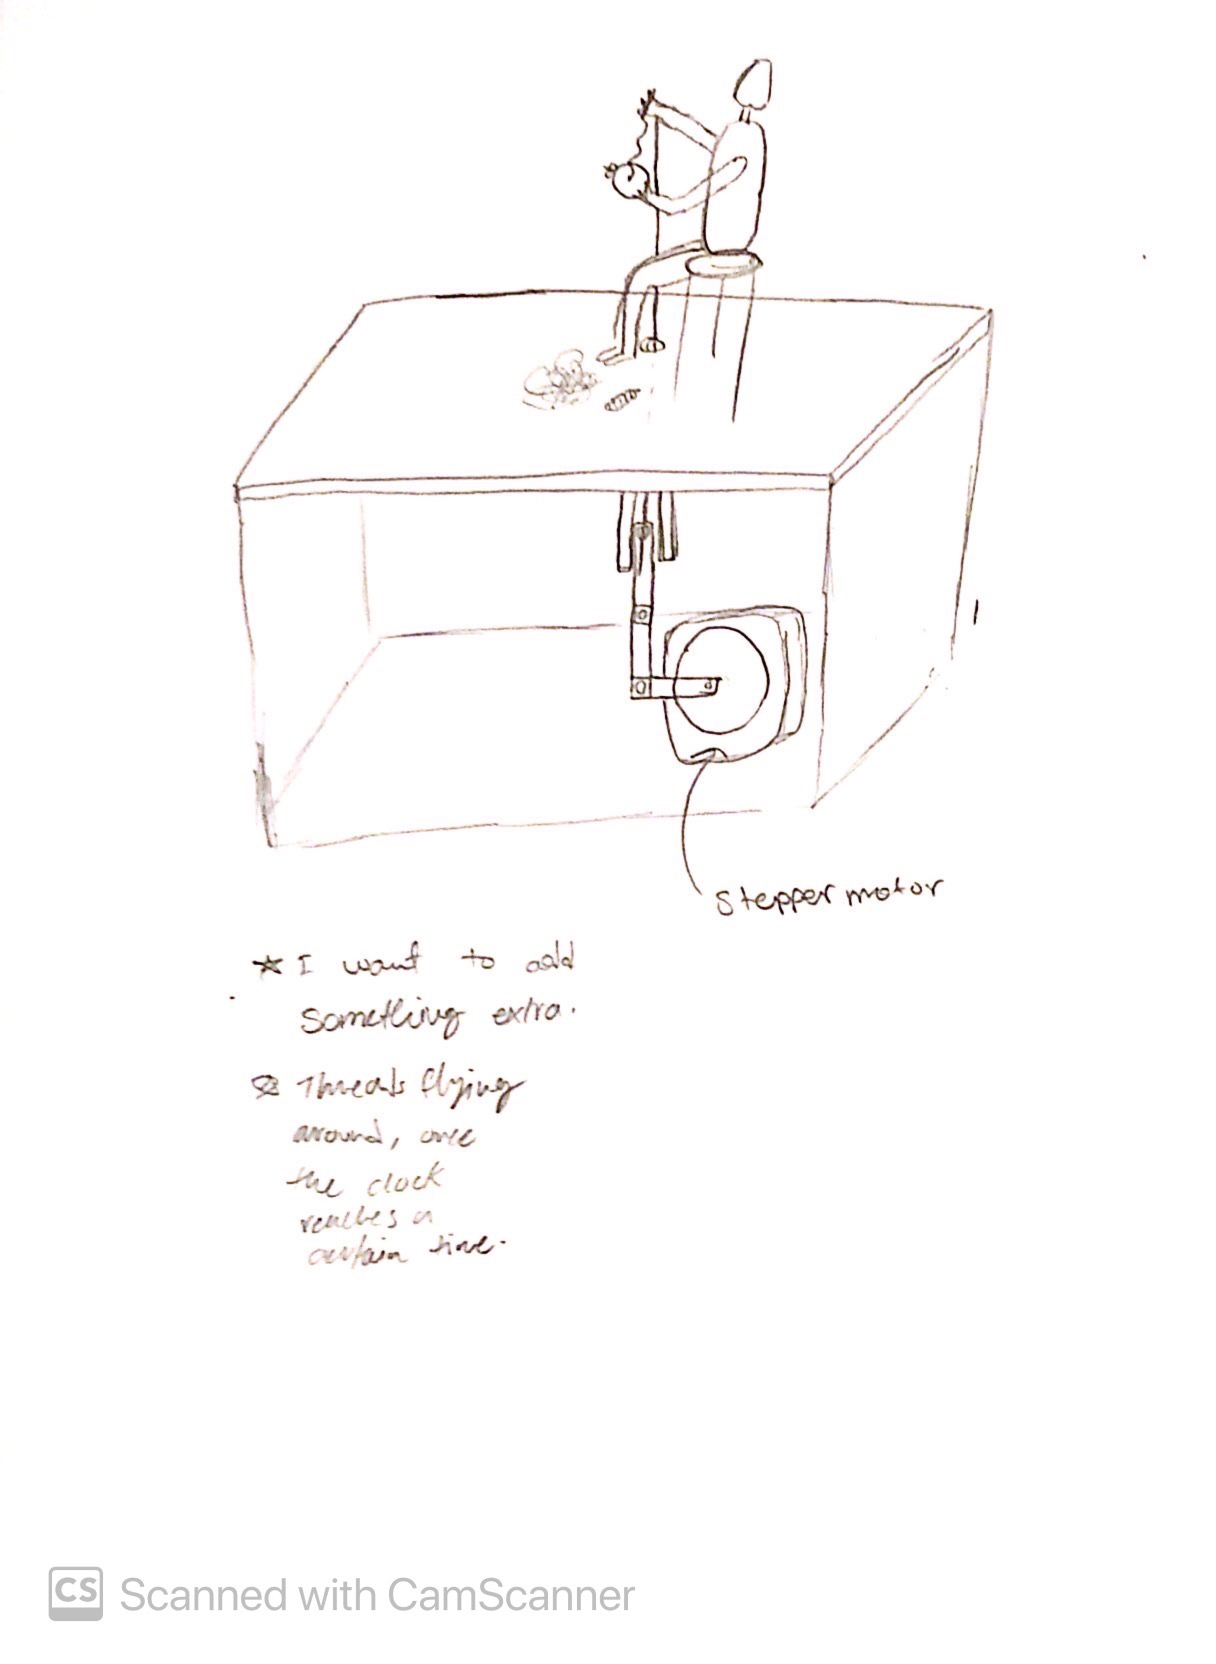 stepper motor
☆ I want to add
something extra.
☆ Threads flying
around, once
the clock
reaches a
certain time.
CS Scanned with CamScanner